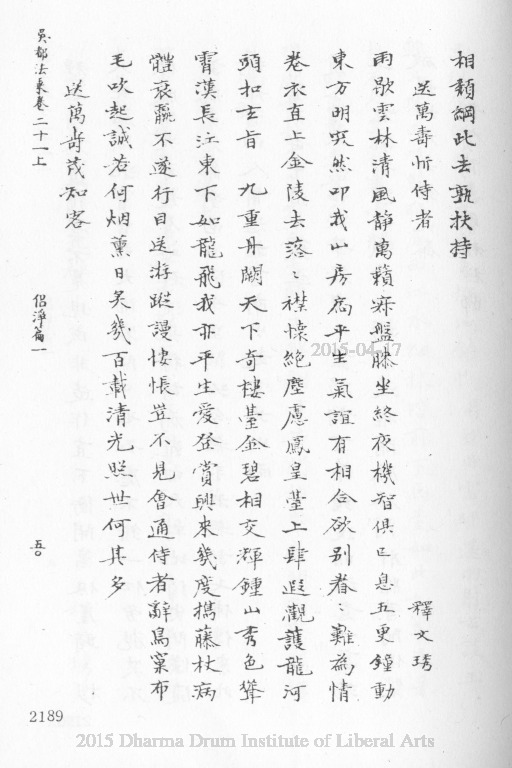 相頹綱此去孰扶持
送萬壽忻侍者
釋文琇
雨歇雲林清風靜萬籟寂盤膝坐終夜機智俱已息五更鐘動
東方明突然叩我山房扃平生氣誼有相合欲別眷〻難為情
卷衣直上金陵去落〻襟懷絕塵慮鳳皇臺上肆遐觀護龍河
頭扣玄旨九重丹闕天下奇樓臺金碧相交輝鍾山秀色聳
霄漢長江東下如龍飛我亦平生愛登賞興來幾度携藤杖病
體衰羸不遂行目送游蹤謾悽悵豈不見會通侍者辭鳥窠布
毛吹起誠若何烟薰日炙幾百載清光照世何其多
送萬壽茂知客
吳都法乘卷二十一上
侶淨篇一
五〇
2189
2015-04-17
2015 Dharma Drum Institute of Liberal Arts